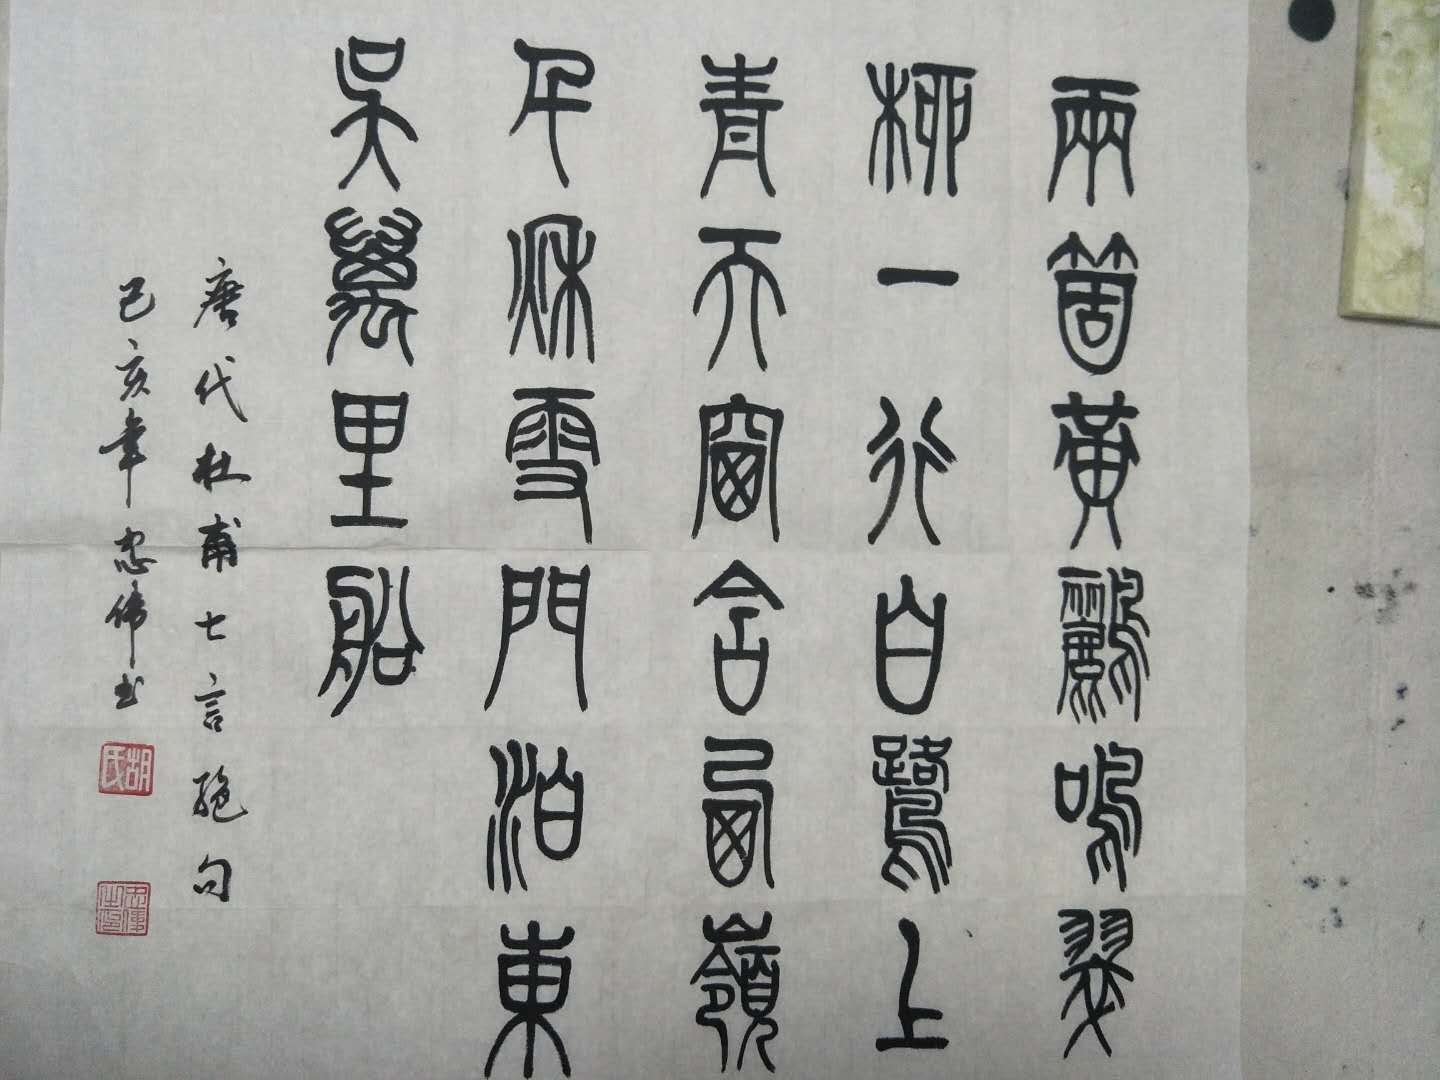 兩箇黃鸝鳴翠
柳一行白鷺上
青天窗含西嶺
千秋雪門泊東
吳萬里船
唐代杜甫七言絕句
己亥年忠伟书
胡氏
忠偉之印